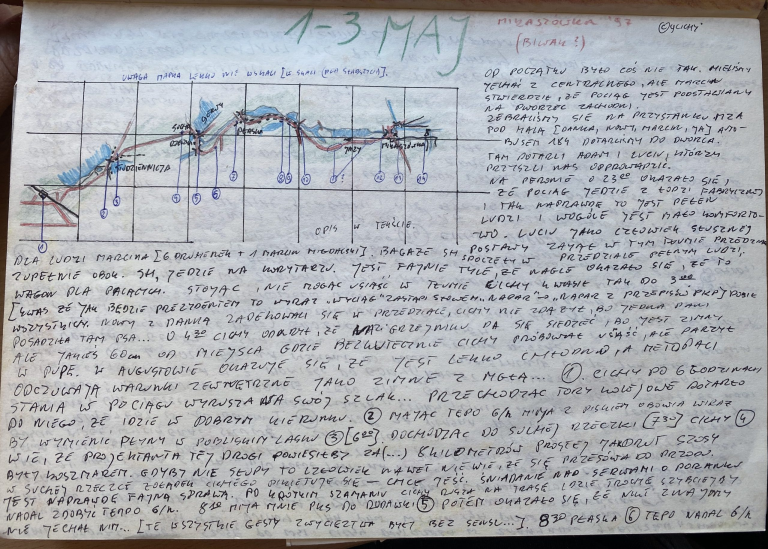 1-3 MAJ
MIKASZÓWKA '97
(BIWAK?)
©YCICHY
UWAGA MAPKA LEKKO NIE W SKALI
SUCHA RZECZKA
SERWY
PŁASKA
STUDZIENNICZA
JAZY
MIKASZÓWKA
OPIS W TEKŚCIE.
OD POCZĄTKU BYŁO COŚ NIE TAK. MIELIŚMY
JECHAĆ Z CENTRALNEGO, ALE MARCIN
STWIERDZIŁ, ŻE POCIĄG JEST PODSTAWIANY
NA DWORZEC ZACHODNI.
ZEBRALIŚMY SIĘ NA PRZYSTANKU MZA
POD HALĄ [DANKA, NOWY, MARCIN, JA] AUTO-
BUSEM 189 DOTARLIŚMY DO DWORCA.
TAM DOTARLI ADAM I LUCIU, KTÓRZY
PRZYSZLI NAS ODPROWADZIĆ.
NA PERONIE O 23:00 OKAZAŁO SIĘ,
ŻE POCIĄG JEDZIE Z ŁODZI FABRYCZNEJ
I TAK NAPRAWDĘ TO JEST PEŁEN
LUDZI I WOGÓLE JEST MAŁO KOMFORTO-
WO. LUCIU JAKO CZŁOWIEK SŁUSZNEJ
POSTAWY ZAJĄŁ W TYM TŁUMIE PRZEDZIAŁ
DLA LUDZI MARCINA [6 DRUHENEK + 1 MARCIN MIGDALSKI]. BAGAŻE SH
SPOCZĘŁY W PRZEDZIALE PEŁNYM LUDZI,
ZUPEŁNIE OBOK. SH, JEDZIE NA KORYTARZU. JEST FAJNIE TYLE, ŻE NAGLE OKAZAŁO SIĘ, ŻE TO
WAGON DLA PALĄCYCH. STOJĄC, I NIE MOGĄC USIĄŚĆ W TŁUMIE CICHY KWASIŁ TAK DO 3:00
[KWAS ŻE JAK BĘDZIE PREZYDENTEM TO WYRAZ "WYCIĄG" ZASTĄPI SŁOWEM "NAPAR" → "NAPAR Z PRZEPISÓW PKP]
WSZYSTKICH. NOWY Z DANKĄ ZADEKOWALI SIĘ W PRZEDZIALE, CICHY NIE ZDĄŻYŁ, BO JEDNA PANI
POSADZIŁA TAM PSA... O 4:30 CICHY ODKRYŁ, ŻE NA GRZEJNIKU DA SIĘ SIEDZIEĆ, BO JEST ZIMNY
ALE JAKIEŚ 60cm OD MIEJSCA GDZIE BEZSKUTECZNIE CICHY PRÓBOWAŁ USIĄŚĆ, ALE PARZYŁ
W PUPĘ. W AUGUSTOWIE OKAZUJE SIĘ, ŻE JEST LEKKO CHŁODNO, A METODACI
ODCZUWAJĄ WARUNKI ZEWNĘTRZNE JAKO ZIMNIE Z MGŁĄ... ①. CICHY PO 6 GODZINACH
STANIA W POCIĄGU WYRUSZA NA SWÓJ SZLAK... PRZECHODZĄC TORY KOLEJOWE DOTARŁO
DO NIEGO, ŻE IDZIE W DOBRYM KIERUNKU. ② MAJĄC TEPO 6/h MIJA Z PISKIEM OBOWIĄ WIRAŻ
BY WYMIENIĆ PŁYNY W POBLISKIM LASKU ③ [6:20]. DOCHODZĄC DO SUCHEJ RZECZKI (7:30) CICHY ④
WIE, ŻE PROJEKTANTA TEJ DROGI POWIESIŁBY ZA (...) 8 KILOMETRÓW PROSTEJ JAK DRUT SZOSY
BYŁY KOSZMAREM. GDYBY NIE SŁUPY TO CZŁOWIEK NAWET NIE WIE, ŻE SIĘ PRZESUWA DO PRZODU.
W SUCHEJ RZECZCE ŻOŁĄDEK CICHEGO OBUDZIŁ SIĘ - CHCE JEŚĆ. ŚNIADANIE NAD SERWAMI O PORANKU
JEST NAPRAWDĘ FAJNĄ SPRAWĄ. PO KRÓTKIM SZAMANIU CICHY RUSZA NA TRASĘ. IDZIE TROCHĘ SZYBCIEJ BY
NADAL ZDOBYĆ TEMPO 6/h. 8:10 MIJA MNIE PKS DO RUDAWKI ⑤ POTEM OKAZAŁO SIĘ, ŻE NIKT ZNAJOMY
NIE JECHAŁ NIM... [TE WSZYSTKIE GESTY ZWYCIĘZTWA BYŁY BEZ SENSU...]. 8:30 PŁASKA ⑥ TEPO NADAL 6/h